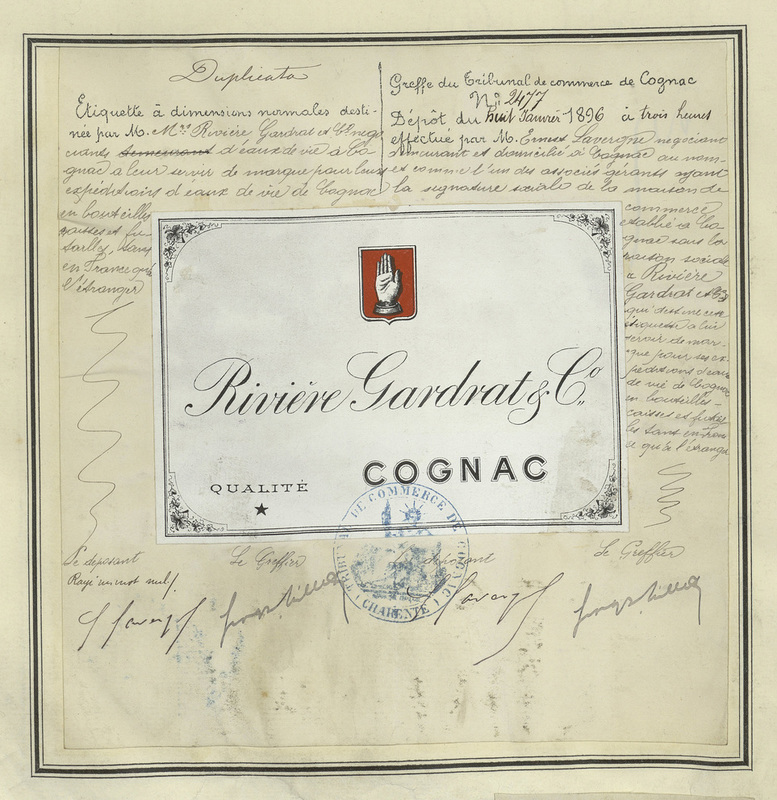 Duplicata
Etiquette à dimensions normales desti-
née par M. Mrs Rivière Gardrat et Cie négo
ciants demeurant d'eaux de vie à Co-
gnac a leur servir de marque pour leurs
expéditions d'eaux de vie de Cognac
en bouteilles
caisses et fu
tailles, tant
en France qu'à
l'étranger
Greffe du Tribunal de commerce de Cognac
No 2477
Dépôt du huit Janvier 1896 à trois heures
effectué par M. Ernest Lavergne négociant
demeurant et domicilié à Cognac au nom
et comme l'un des associés gérants ayant
la signature sociale de la maison de
commerce
établie à Co
gnac sous la
raison sociale
Rivière
Gardrat et Cie
qui destine cette
étiquette à lui
servir de mar-
que pour ses ex-
péditions d'eaux
de vie de Cognac
en bouteilles
caisses et futail
les tant en Fran
ce qu'à l'étranger
Rivière Gardrat & Co.
COGNAC
QUALITÉ
TRIBUNAL DE COMMERCE DE COGNAC
(CHARENTE)
Le deposant
Le Greffier
Le deposant
Le Greffier
Rayé un mot nul.
Lavergne
Lavergne